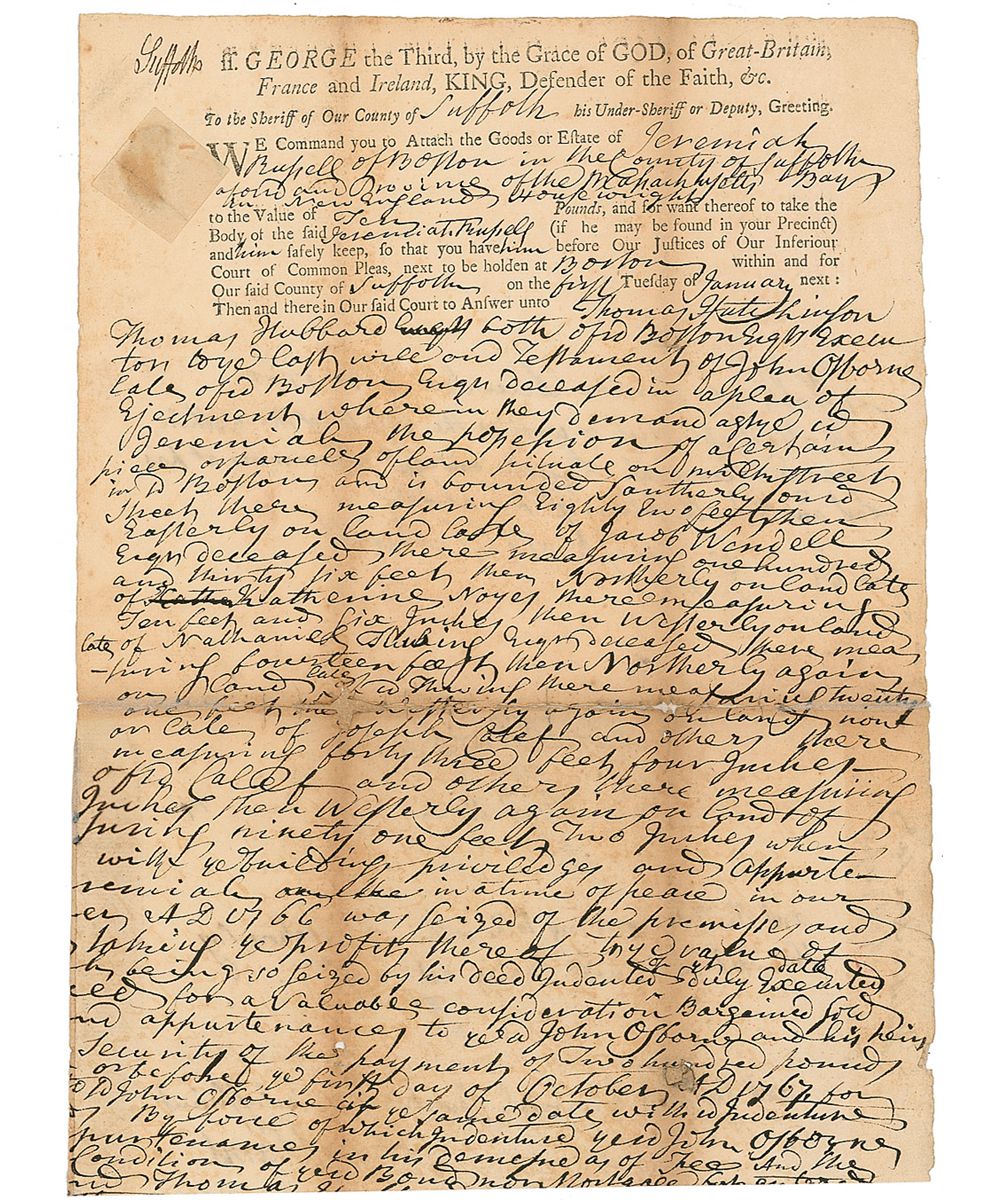 Suffolk ff. GEORGE the Third, by the Grace of GOD, of Great-Britain,
France and Ireland, KING, Defender of the Faith, &c.
To the Sheriff of Our County of Suffolk his Under-Sheriff or Deputy, Greeting.
WE Command you to Attach the Goods or Estate of Jeremiah
Russell of Boston in the County of Suffolk
afors'd and Province of the Massachusetts Bay
in New England Housewright
to the Value of Ten Pounds, and for want thereof to take the
Body of the said Jeremiah Russell (if he may be found in your Precinct)
and him safely keep, so that you have him before Our Justices of Our Inferiour
Court of Common Pleas, next to be holden at Boston within and for
Our said County of Suffolk on the first Tuesday of January next :
Then and there in Our said Court to Answer unto Thomas Hutchinson
Thomas Hubbard both of sd Boston Esqrs Execu
tors to ye last will and Testament of John Osborne
late of sd Boston Esqr deceased in a plea of
Ejectment wherein they demand agt ye sd
Jeremiah the possession of a certain
piece or parcel of land situate on milk street
in sd Boston and is bounded Southerly on sd
Street there measuring Eighty two feet then
Easterly on land late of Jacob Wendell
Esqr deceased there measuring one hundred
and thirty six feet then Northerly on land late
of Katherine Noyes there measuring
Ten feet and six Inches then Westerly on land
late of Nathaniel Esqr deceased there mea
-suring fourteen feet then Northerly again
on land late of sd there measuring twenty
one feet then Westerly again on land now
or late of Joseph Calef and others there
measuring forty three feet four Inches
of sd Calef and others there measuring
Inches then Westerly again on land of
suring ninety one feet Two Inches when
with ye buildings priviledges and appurte-
remiah in a time of peace in our
AD 1766 was seized of the premisses and
taking ye profits there of to ye value of
being so seized by his deed Indented of yt date duly Executed
for a valuable consideration Bargained Sold
nd appurtenances to ye sd John Osborne and his heirs
Security of the payment of Two hundred pounds
or before ye first day of October AD 1767 for
sd John Osborne of ye same date with sd Indenture
By force of which Indenture ye sd John Osborne
purtenances in his demesne as of Fee And the
Condition of ye sd Bond nor Mortgage
nd Thomas